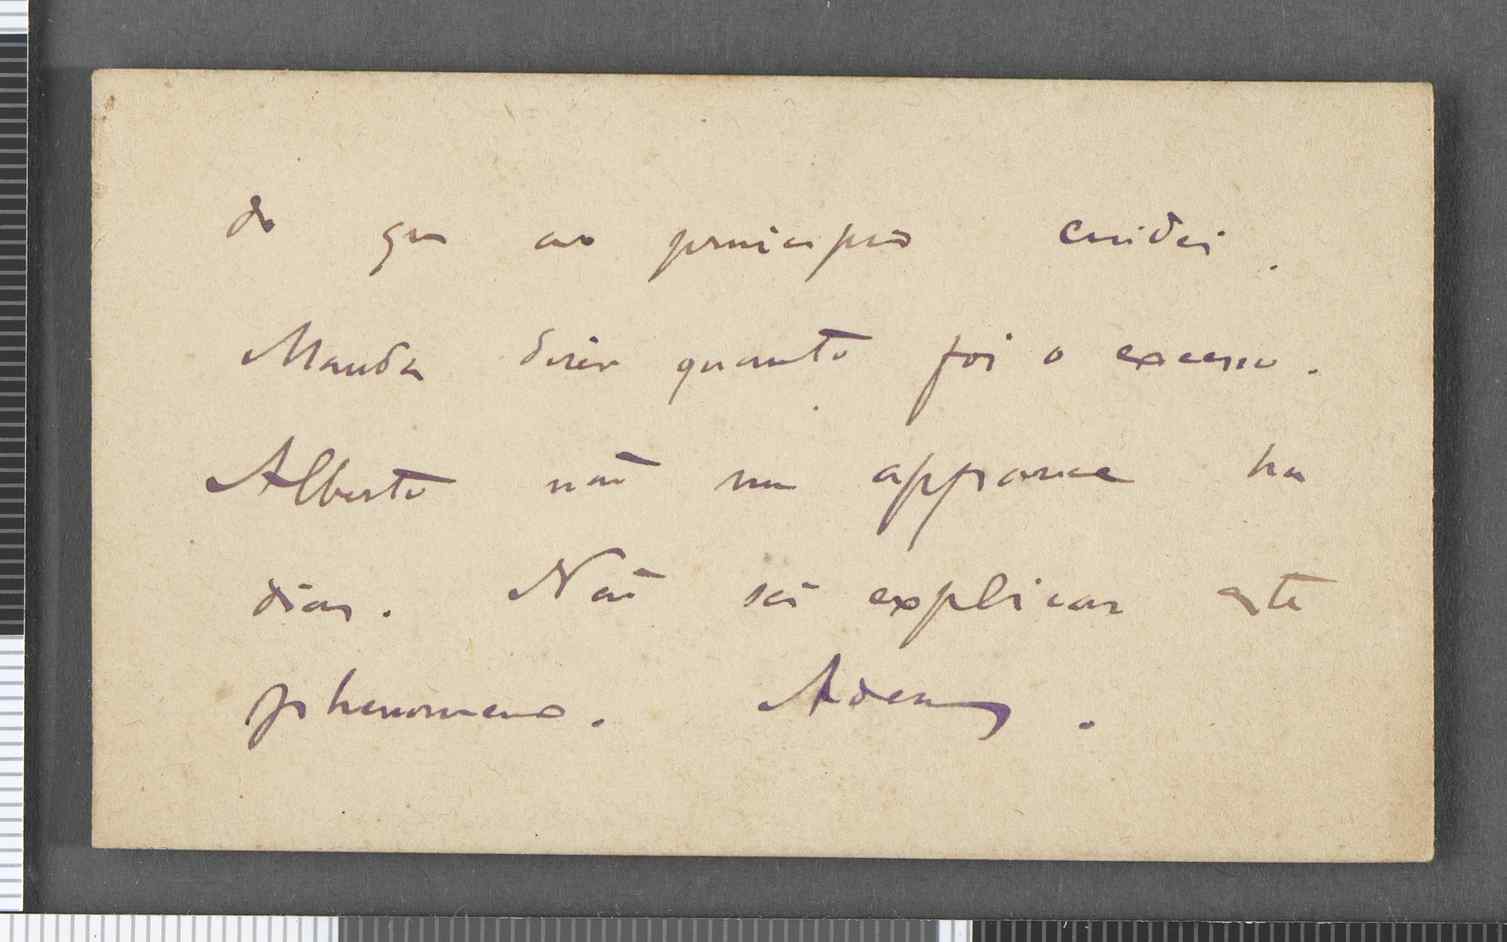 do que ao principio cuidei.
Manda dizer quanto foi o excesso.
Alberto não me apparece ha
dias. Não sei explicar este
phenomeno. Adeus.